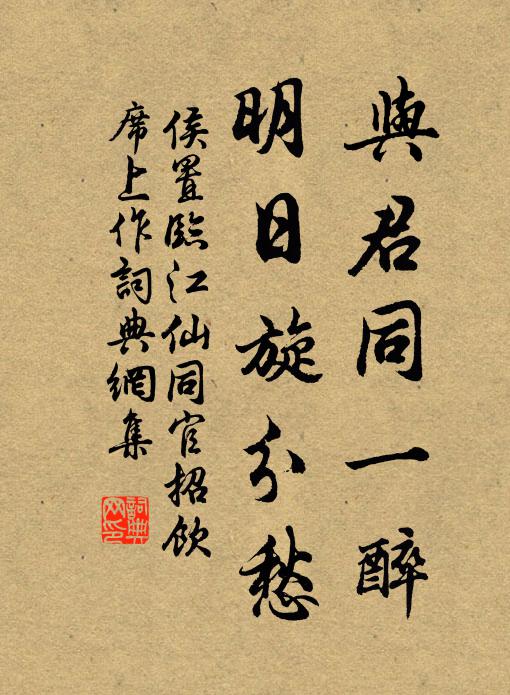 與君同一醉
明日旋分愁
侯置臨江仙同官招飲
席上作詞典網集
詞典
网印